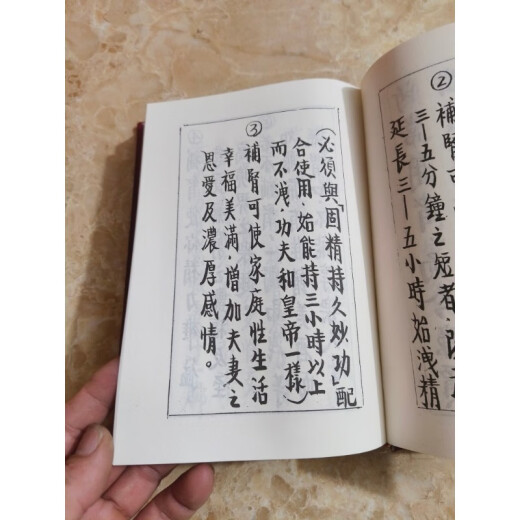 ②
補腎可
三—五分鐘之短者·
延長三—五小時始洩精
③
(必須與「固精持久妙功」配
合使用·始能持三小時以上
而不洩·功夫和皇帝一樣)
補腎可使家庭性生活
幸福美滿·增加夫妻之
恩愛及濃厚感情。